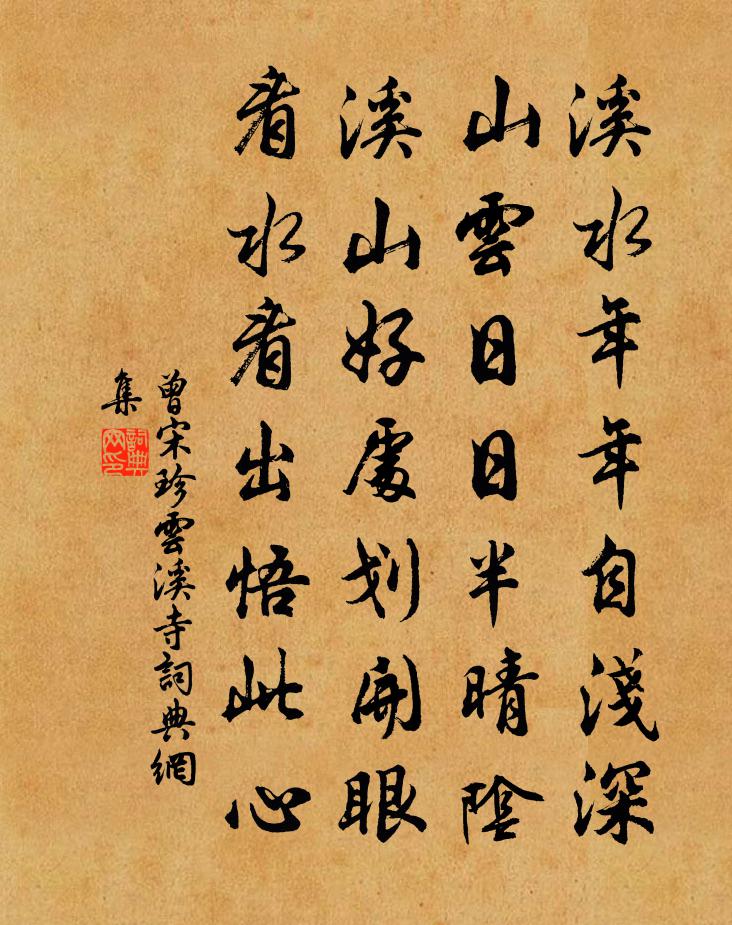 溪水年年自淺深
山雲日日半晴陰
溪山好處划開眼
看水看出悟此心
曾宋珍雲溪寺詞典網
集
詞典
网印